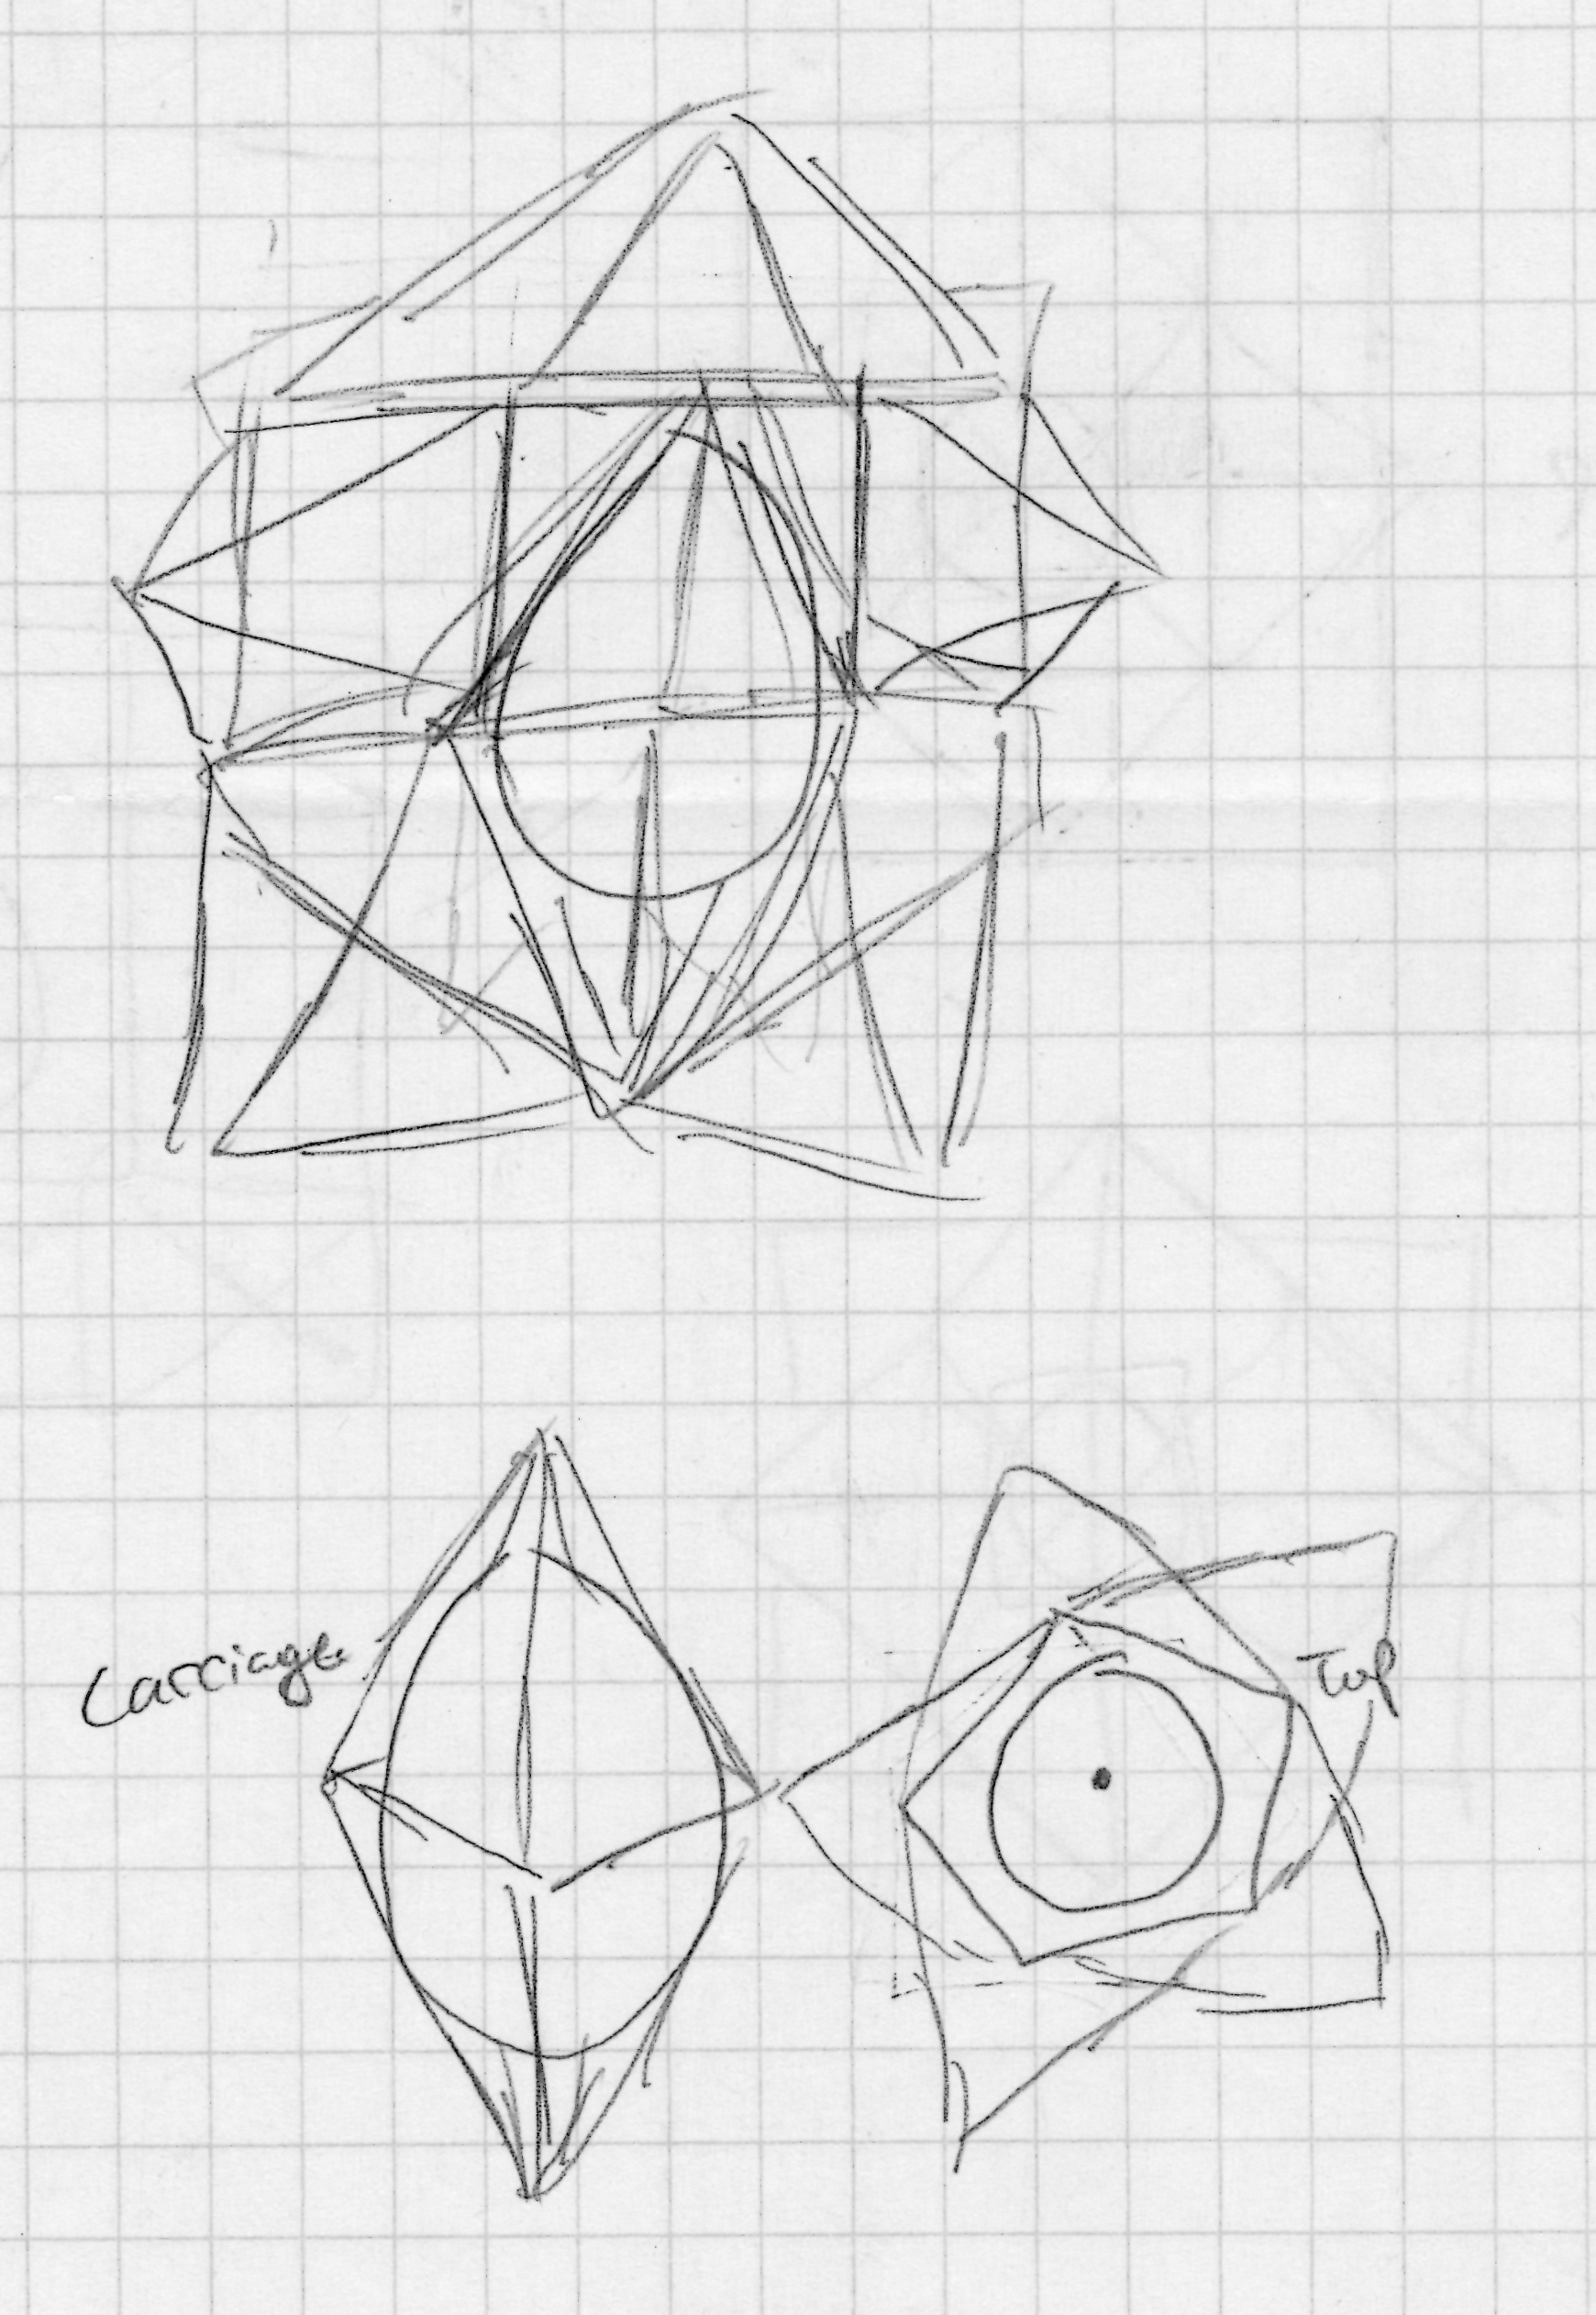 Carriage
Top